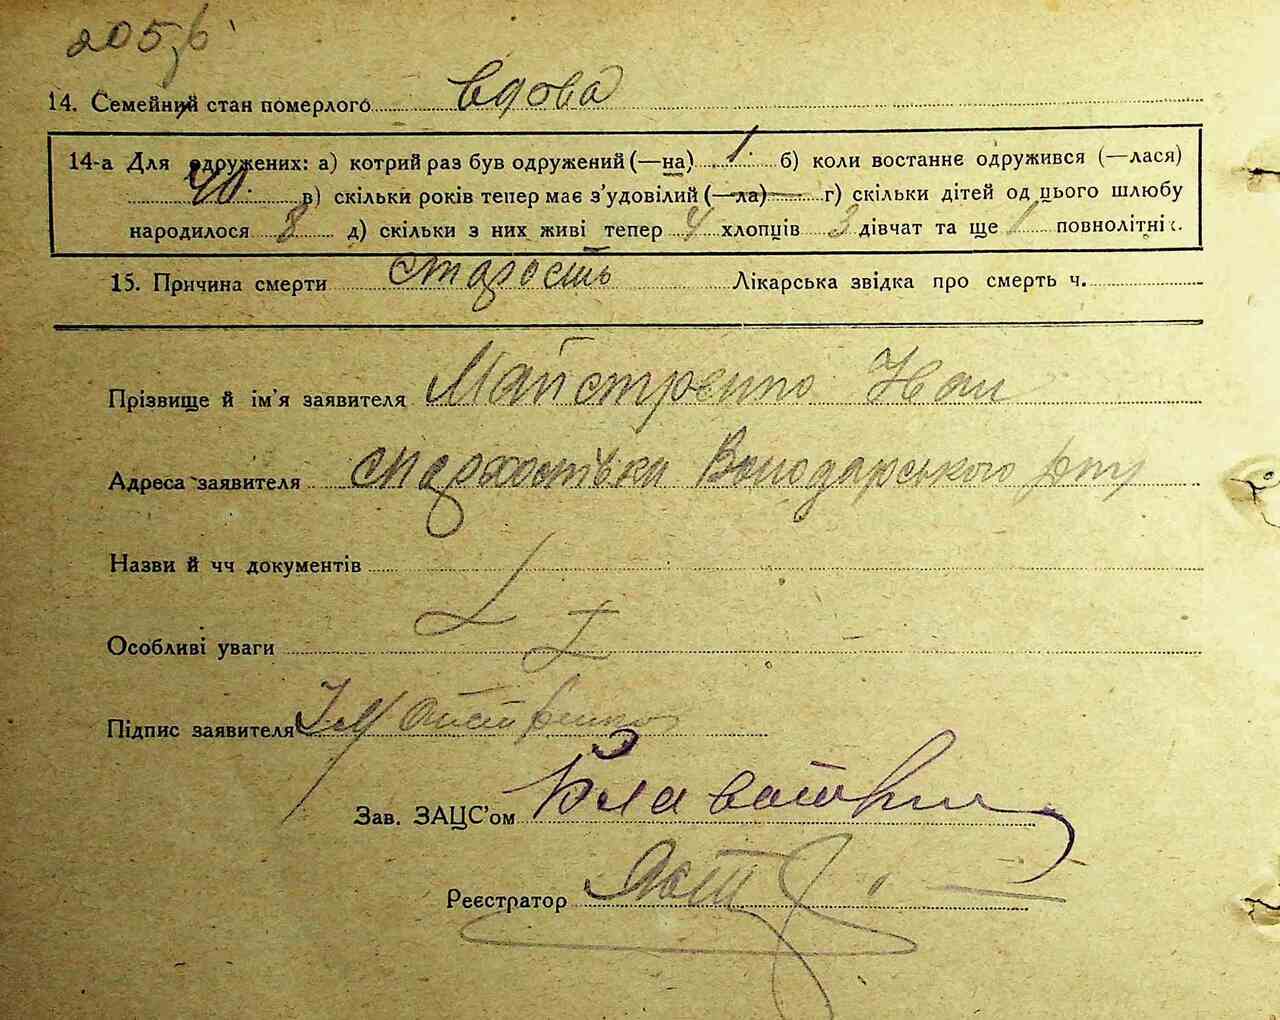 205
14. Семейний стан померлого вдова
14-а Для одружених: а) котрий раз був одружений (—на) 1. б) коли востаннє одружився (—лася)
40. в) скільки років тепер має з'удовілий (—ла) г) скільки дітей од цього шлюбу
народилося 8 д) скільки з них живі тепер 4 хлопців 3 дівчат та ще 1 повнолітніх.
15. Причина смерти старость Лікарська звідка про смерть ч.
Прізвище й ім'я заявителя Майстренко Іван
Адреса заявителя Володарського р-ну
Назви й чч документів
Особливі уваги
Підпис заявителя І Майстренко
Зав. ЗАЦС'ом
Реєстратор